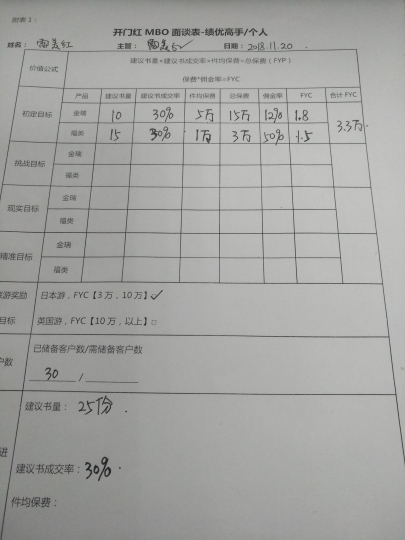 附表1：
开门红 MBO 面谈表-绩优高手/个人
姓名： 美红 主管： 美红 日期：2018.11.20
价值公式 建议书量×建议书成交率×件均保费=总保费（FYP）
保费*佣金率=FYC
产品 建议书量 建议书成交率 件均保费 总保费 佣金率 FYC 合计 FYC
初定目标 金瑞 10 30% 5万 15万 12% 1.8 3.3万
福类 15 30% 1万 3万 50% 1.5
挑战目标 金瑞
福类
现实目标 金瑞
福类
精准目标 金瑞
福类
旅游奖励 日本游，FYC【3万，10万】✓
目标 英国游，FYC【10万，以上】□
户数 已储备客户数/需储备客户数
30 /
建议书量： 25份
进 建议书成交率：30%
件均保费：